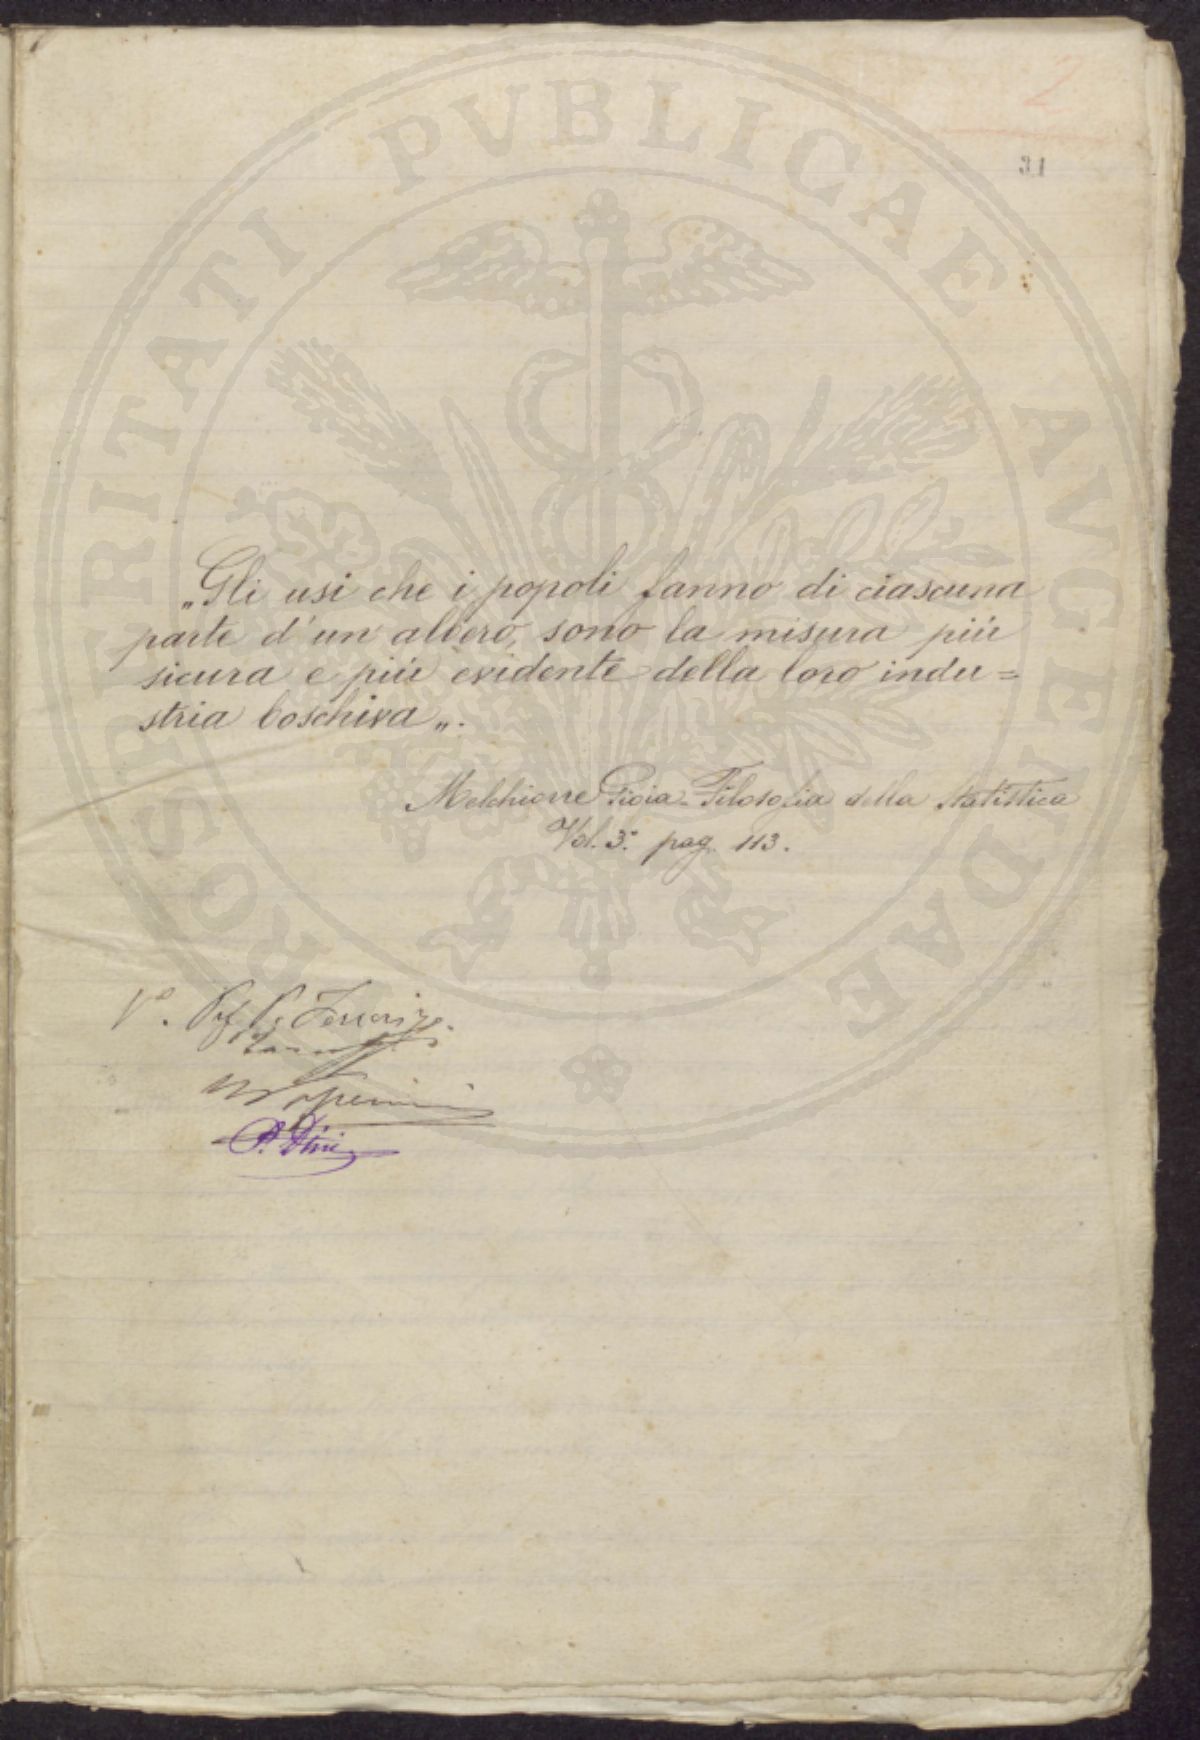 2
31
„Gli usi che i popoli fanno di ciascuna
parte d'un albero, sono la misura più
sicura e più evidente della loro indu=
stria boschiva„.
Melchiorre Gioia - Filosofia della Statistica
Vol. 3.° pag. 113.
V°.
P. Dini
PROSPERITATI PUBLICAE AUGENDAE